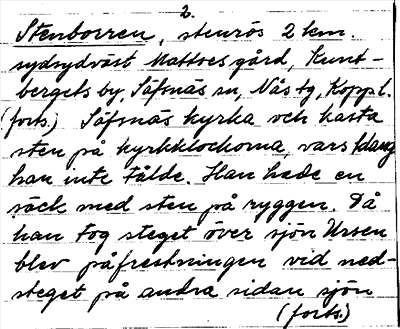 2.
Stenborren, stenrös 2 km.
sydsydväst Mattoes gård, Kunt-
bergets by, Säfsnäs sn, Nås tg, Kopp l.
(forts.) Säfsnäs kyrka och kasta
sten på kyrkklockorna, vars klang
han inte tålde. Han hade en
säck med sten på ryggen. Då
han tog steget över sjön Ursen
blev påfrestningen vid ned-
steget på andra sidan sjön
(forts.)